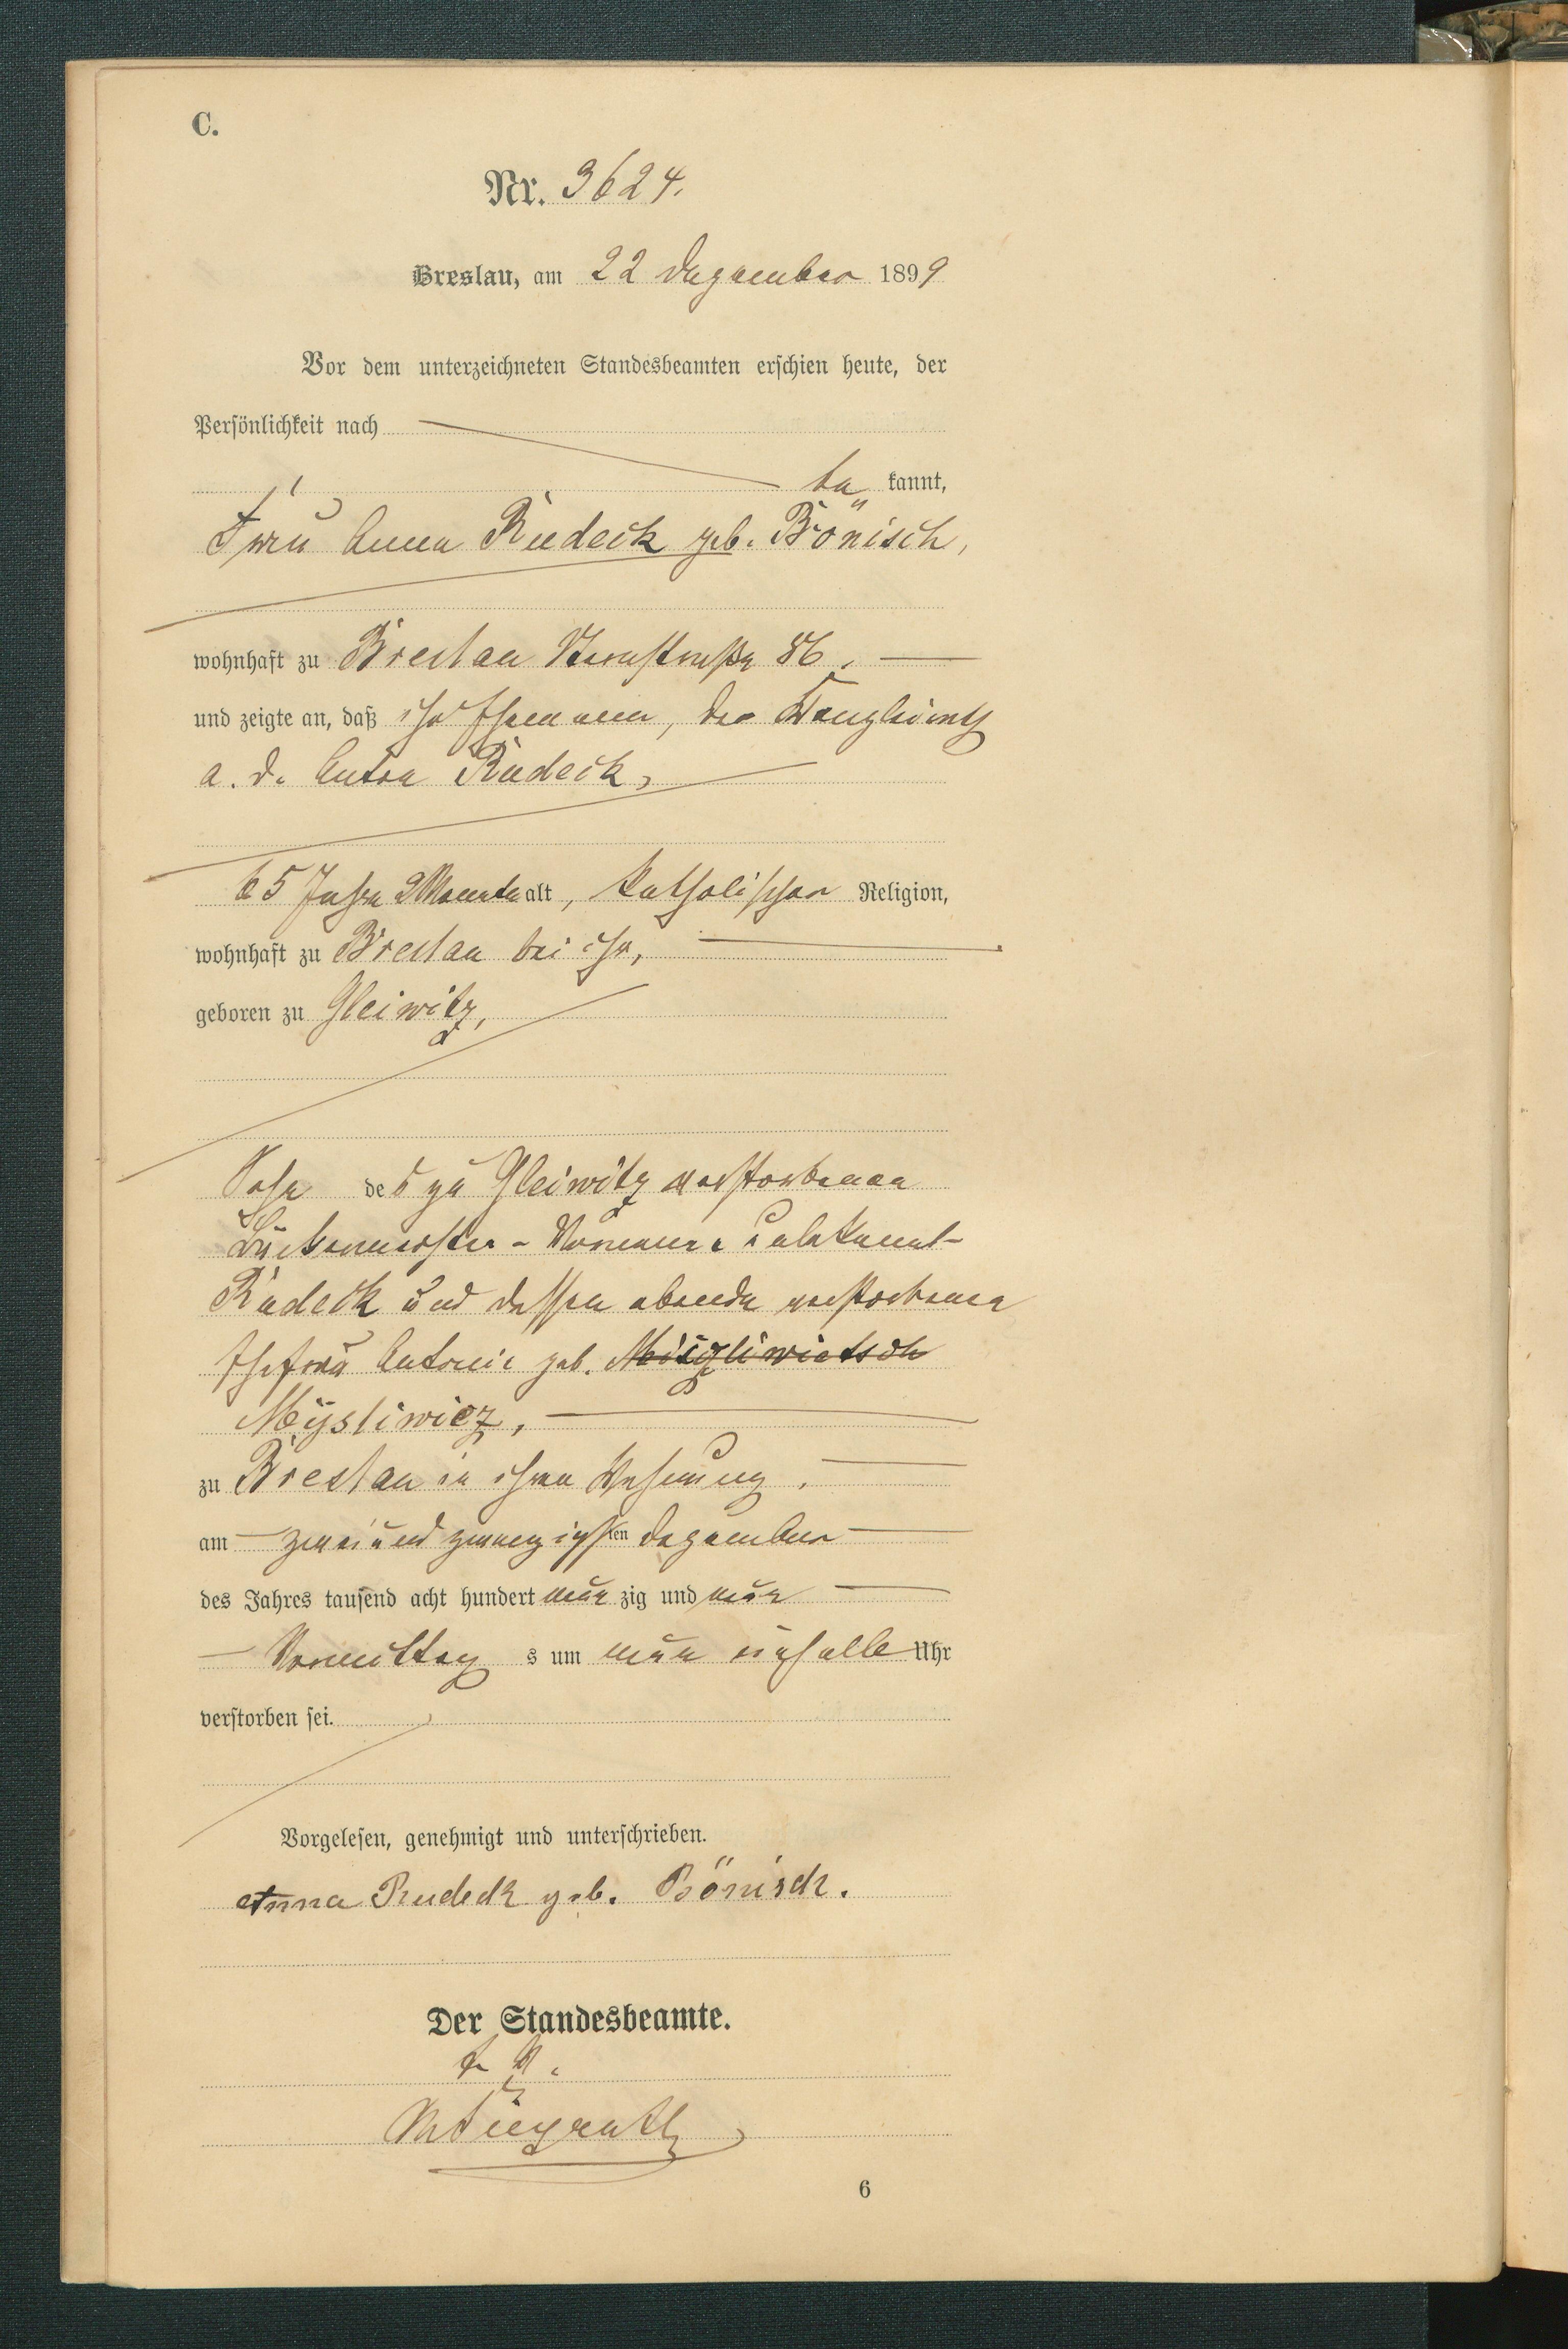 C.
Nr. 3624.
Breslau, am 22 Dezember 1899
Vor dem unterzeichneten Standesbeamten erschien heute, der
Persönlichkeit nach
be kannt,
Frau Anna Rudeck geb. Bönisch,
wohnhaft zu Breslau Sternstraße 86.
und zeigte an, daß ihr Ehemann, der Kanzleirath
a. D. Anton Rudeck,
65 Jahre 2 Monate alt, katholischer Religion,
wohnhaft zu Breslau bei ihr,
geboren zu Gleiwitz,
Sohn des zu Gleiwitz verstorbenen
Bäckermeister - Vorname unbekannt -
Rudeck und dessen ebenda verstorbenen
Ehefrau Antonie geb.
Mysliwiez,
zu Breslau in ihrer Wohnung.
am zweiundzwanzigsten Dezember
des Jahres tausend acht hundert neun zig und neun
Vormittag s um neun einhalb Uhr
verstorben sei.
Vorgelesen, genehmigt und unterschrieben.
Anna Rudeck geb. Bönisch.
Der Standesbeamte.
6